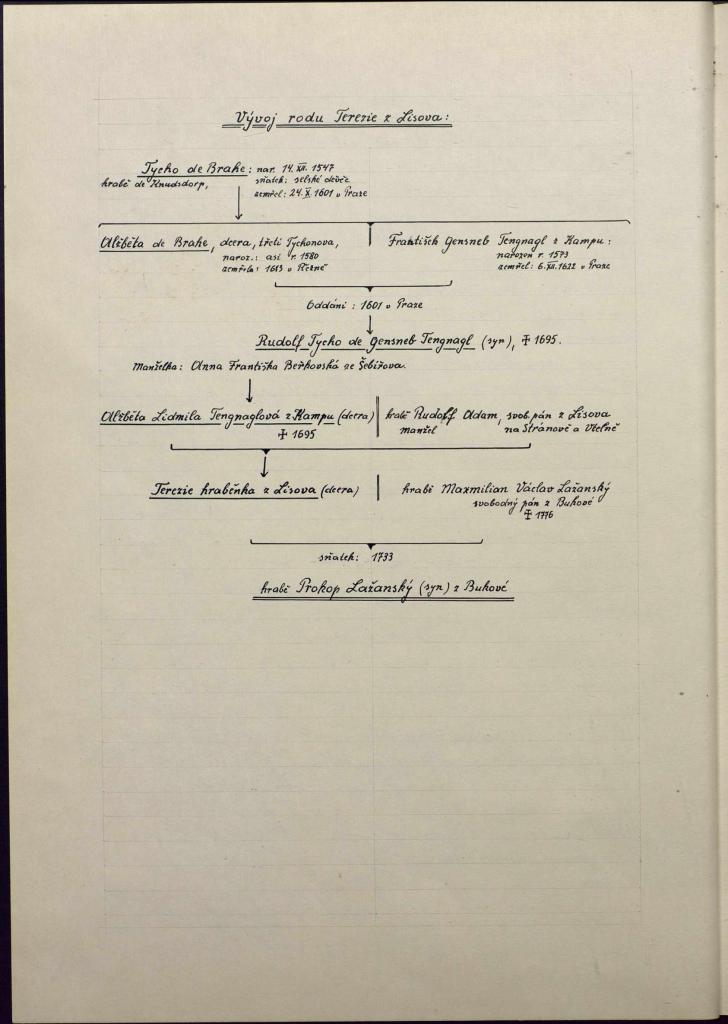 Vývoj rodu Terezie z Lisova:
Tycho de Brahe: nar. 14. XII. 1547
hrabě de Knudsdorp, sňatek: selské děvče
zemřel: 24. X. 1601 v Praze
Alžběta de Brahe, dcera, třetí Tychonova,
naroz.: asi r. 1580
zemřela: 1613 v Řezně
František Gensneb Tengnagl z Kampu:
narozen r. 1573
zemřel: 6. XII. 1622 v Praze
Oddáni: 1601 v Praze
Rudolf Tycho de Gensneb Tengnagl (syn), ‡ 1695.
Manželka: Anna Františka Beřkovská ze Šebířova.
Alžběta Lidmila Tengnaglová z Kampu (dcera)
‡ 1695
hrabě Rudolf Adam, svob. pán z Lisova
manžel na Stránově a Vtelně
Terezie hraběnka z Lisova (dcera)
hrabě Maxmilian Václav Lažanský
svobodný pán z Bukové
‡ 1776
sňatek: 1733
hrabě Prokop Lažanský (syn) z Bukové